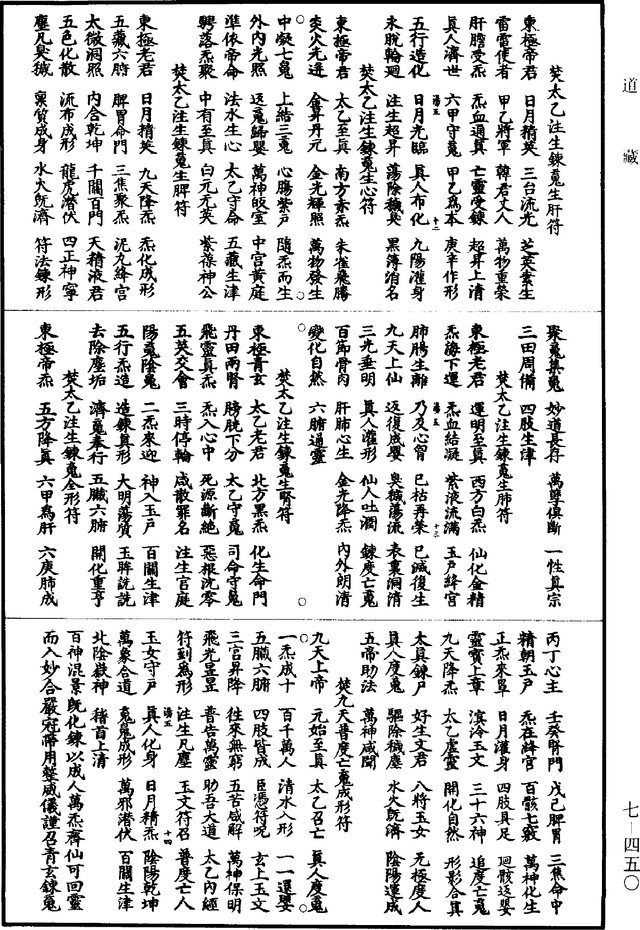 道藏
焚太乙注生鍊䰟生肝符
東極帝君　日月精英　三台流光　芝英素生
雷雷使者　甲乙將軍　韓君丈人　萬物重榮
肝膽受炁　炁血通真　亡靈受鍊　超昇上清
真人濟世　六甲守䰟　甲乙爲本　庚辛作形
五行造化　日月光臨　真人布化　九陽灌身
未脫輪廻　注生超昇　蕩除穢臭　黑簿消名
焚太乙注生鍊䰟生心符
東極帝君　太乙至真　南方赤炁　朱雀飛騰
炎火光迸　含昇丹元　金光輝照　萬物發生
中凝十䰟　上結三䰟　心腸紫戶　隨炁而生
外內光照　返䰟歸嬰　萬神畋室　中宮黄庭
準依帝命　法水生心　太乙守命　五藏生津
騁落炁聚　中有至真　白元元英　紫葆神公
焚太乙注生鍊䰟生脾符
東極老君　日月精英　九天降炁　炁化成形
五藏六腑　脾胃命門　三焦聚炁　泥丸絳宮
太微洞照　內含乾坤　千關百門　天精液君
五色化散　流布成形　龍虎潛伏　四正神寧
塵凡臭穢　稟質成身　水火旣濟　符法鍊形
聚䰟集䰟　妙道長存　萬孽俱斷　一性真宗
三田周備　四肢生津
焚太乙注生鍊䰟生肺符
東極老君　還明至真　西方白炁　仙化金精
炁海下運　炁血結凝　紫液流滿　玉戶絳宮
肺腸生離　乃及心胷　已枯再榮　已滅復生
九天上仙　返復成嬰　臭穢蕩流　表裏洞清
三光垂明　真人灌形　仙人吐澗　鍊度亡䰟
百節骨肉　肝肺心生　金光降炁　內外朗清
變化自然　六腑通靈
焚太乙注生鍊䰟生腎符
東極青玄　太乙老君　北方黑炁　化生命門
丹田兩腎　膀胱下分　太乙守䰟　司命守䰟
飛靈真炁　炁入心中　死源斷絶　惡報沈零
五英交會　三時停輪　咸散罪名　注生官庭
陽䰟陰䰟　二炁來迎　神入玉戶　百關生津
五行炁造　造鍊真形　大明蕩質　玉眸詵詵
去除塵垢　濟䰟奉行　五臟六腑　開化重亨
焚太乙注生鍊䰟全形符
東極帝炁　五方降真　六甲爲肝　六庚肺成
丙丁心主　壬癸腎門　戊己脾胃　三焦命中
精朝玉戶　炁在絳官　百骸七竅　萬神化生
正炁來單　日月灌身　四肢具足　廻骸返嬰
靈寶上章　溟涬玉文　三十六神　追度亡䰟
九天降炁　太乙虛靈　開化自然　形影合真
太真鍊尸　好生文君　八將玉女　无極度人
真人度䰟　驅除穢塵　水火旣濟　陰陽運成
五帝助法　萬神咸聞
焚九天普度亡䰟成形符
九天上帝　元始至真　太乙召亡　真人度䰟
一炁成十　百千萬人　清水入形　一一還嬰
五臟六腑　四肢皆成　臣憑符呪　玄上玉文
三宮昇降　徃來無窮　五苦咸解　萬神保明
飛光昱昱　普告萬靈　助吾大道　太乙內經
符到爲形　注生凡塵　玉文符召　普度亡人
玉女守戶　真人化身　日月精炁　陰陽乾坤
萬象合道　䰟䰟成形　萬邪潛伏　百關生津
北陰嶽神　稽首上清
百神混景旣化鍊以成人萬炁齊仙可回靈
而入妙合嚴冠帶用整威儀謹召青玄鍊䰟
七—四五〇